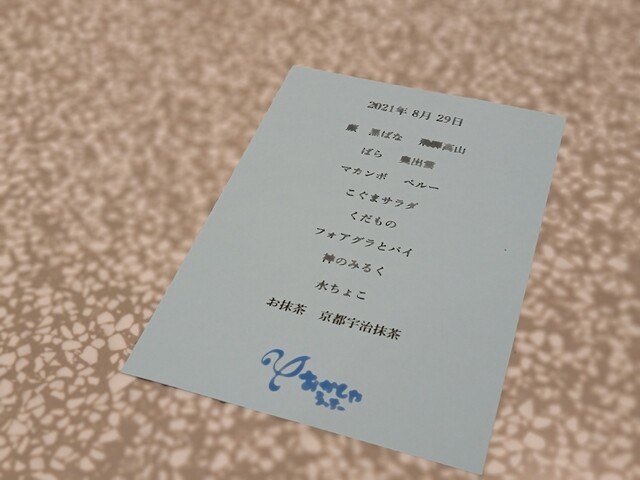 2021年 8月 29日
黒ばな 飛騨高山
ばら 奥出雲
マカンボ ペルー
こぐまサラダ
くだもの
フォアグラとパイ
神のみるく
水ちょこ
お抹茶 京都宇治抹茶